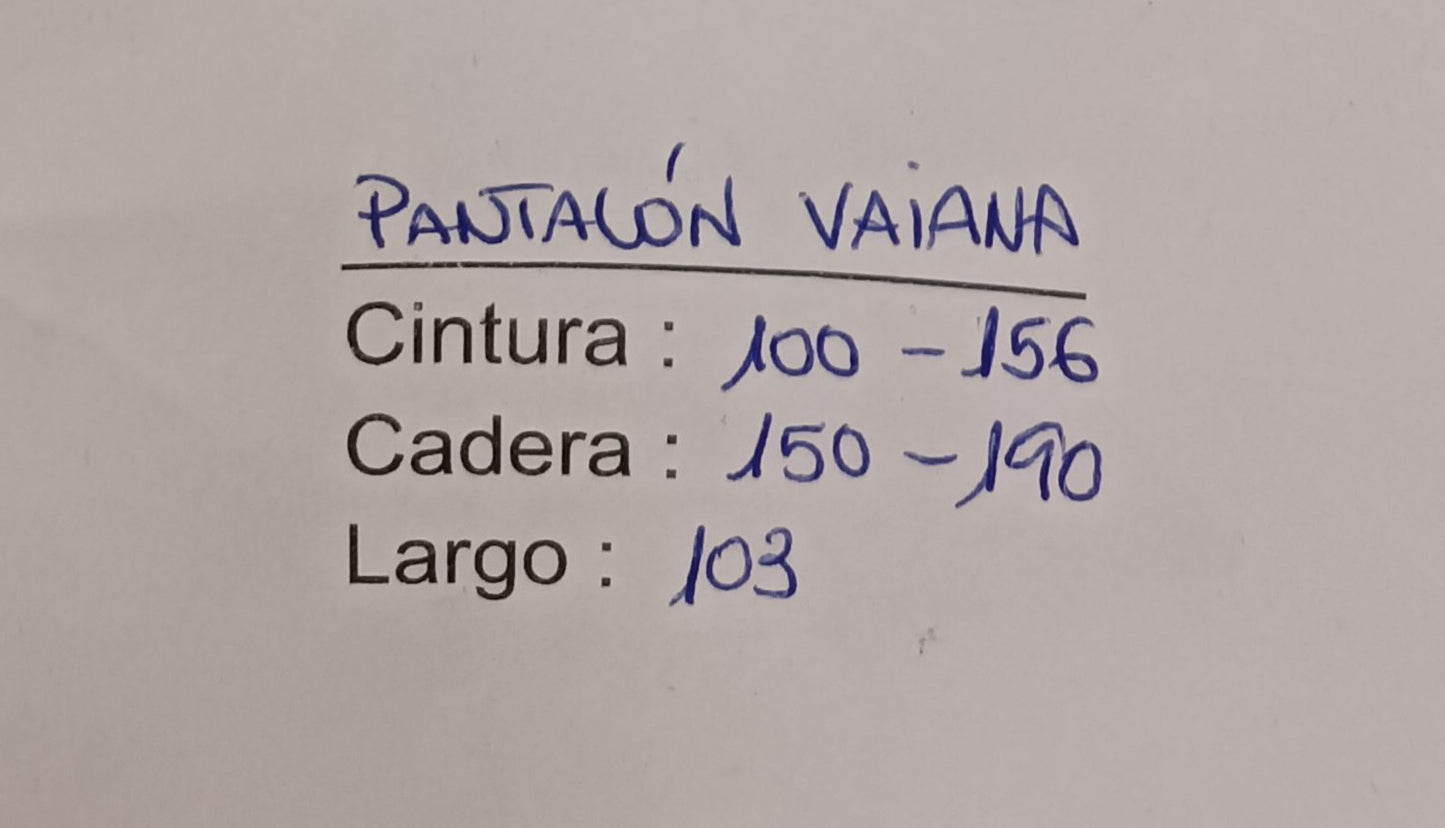 PANTALÓN VAIANA
Cintura : 100 - 156
Cadera : 150 - 190
Largo : 103